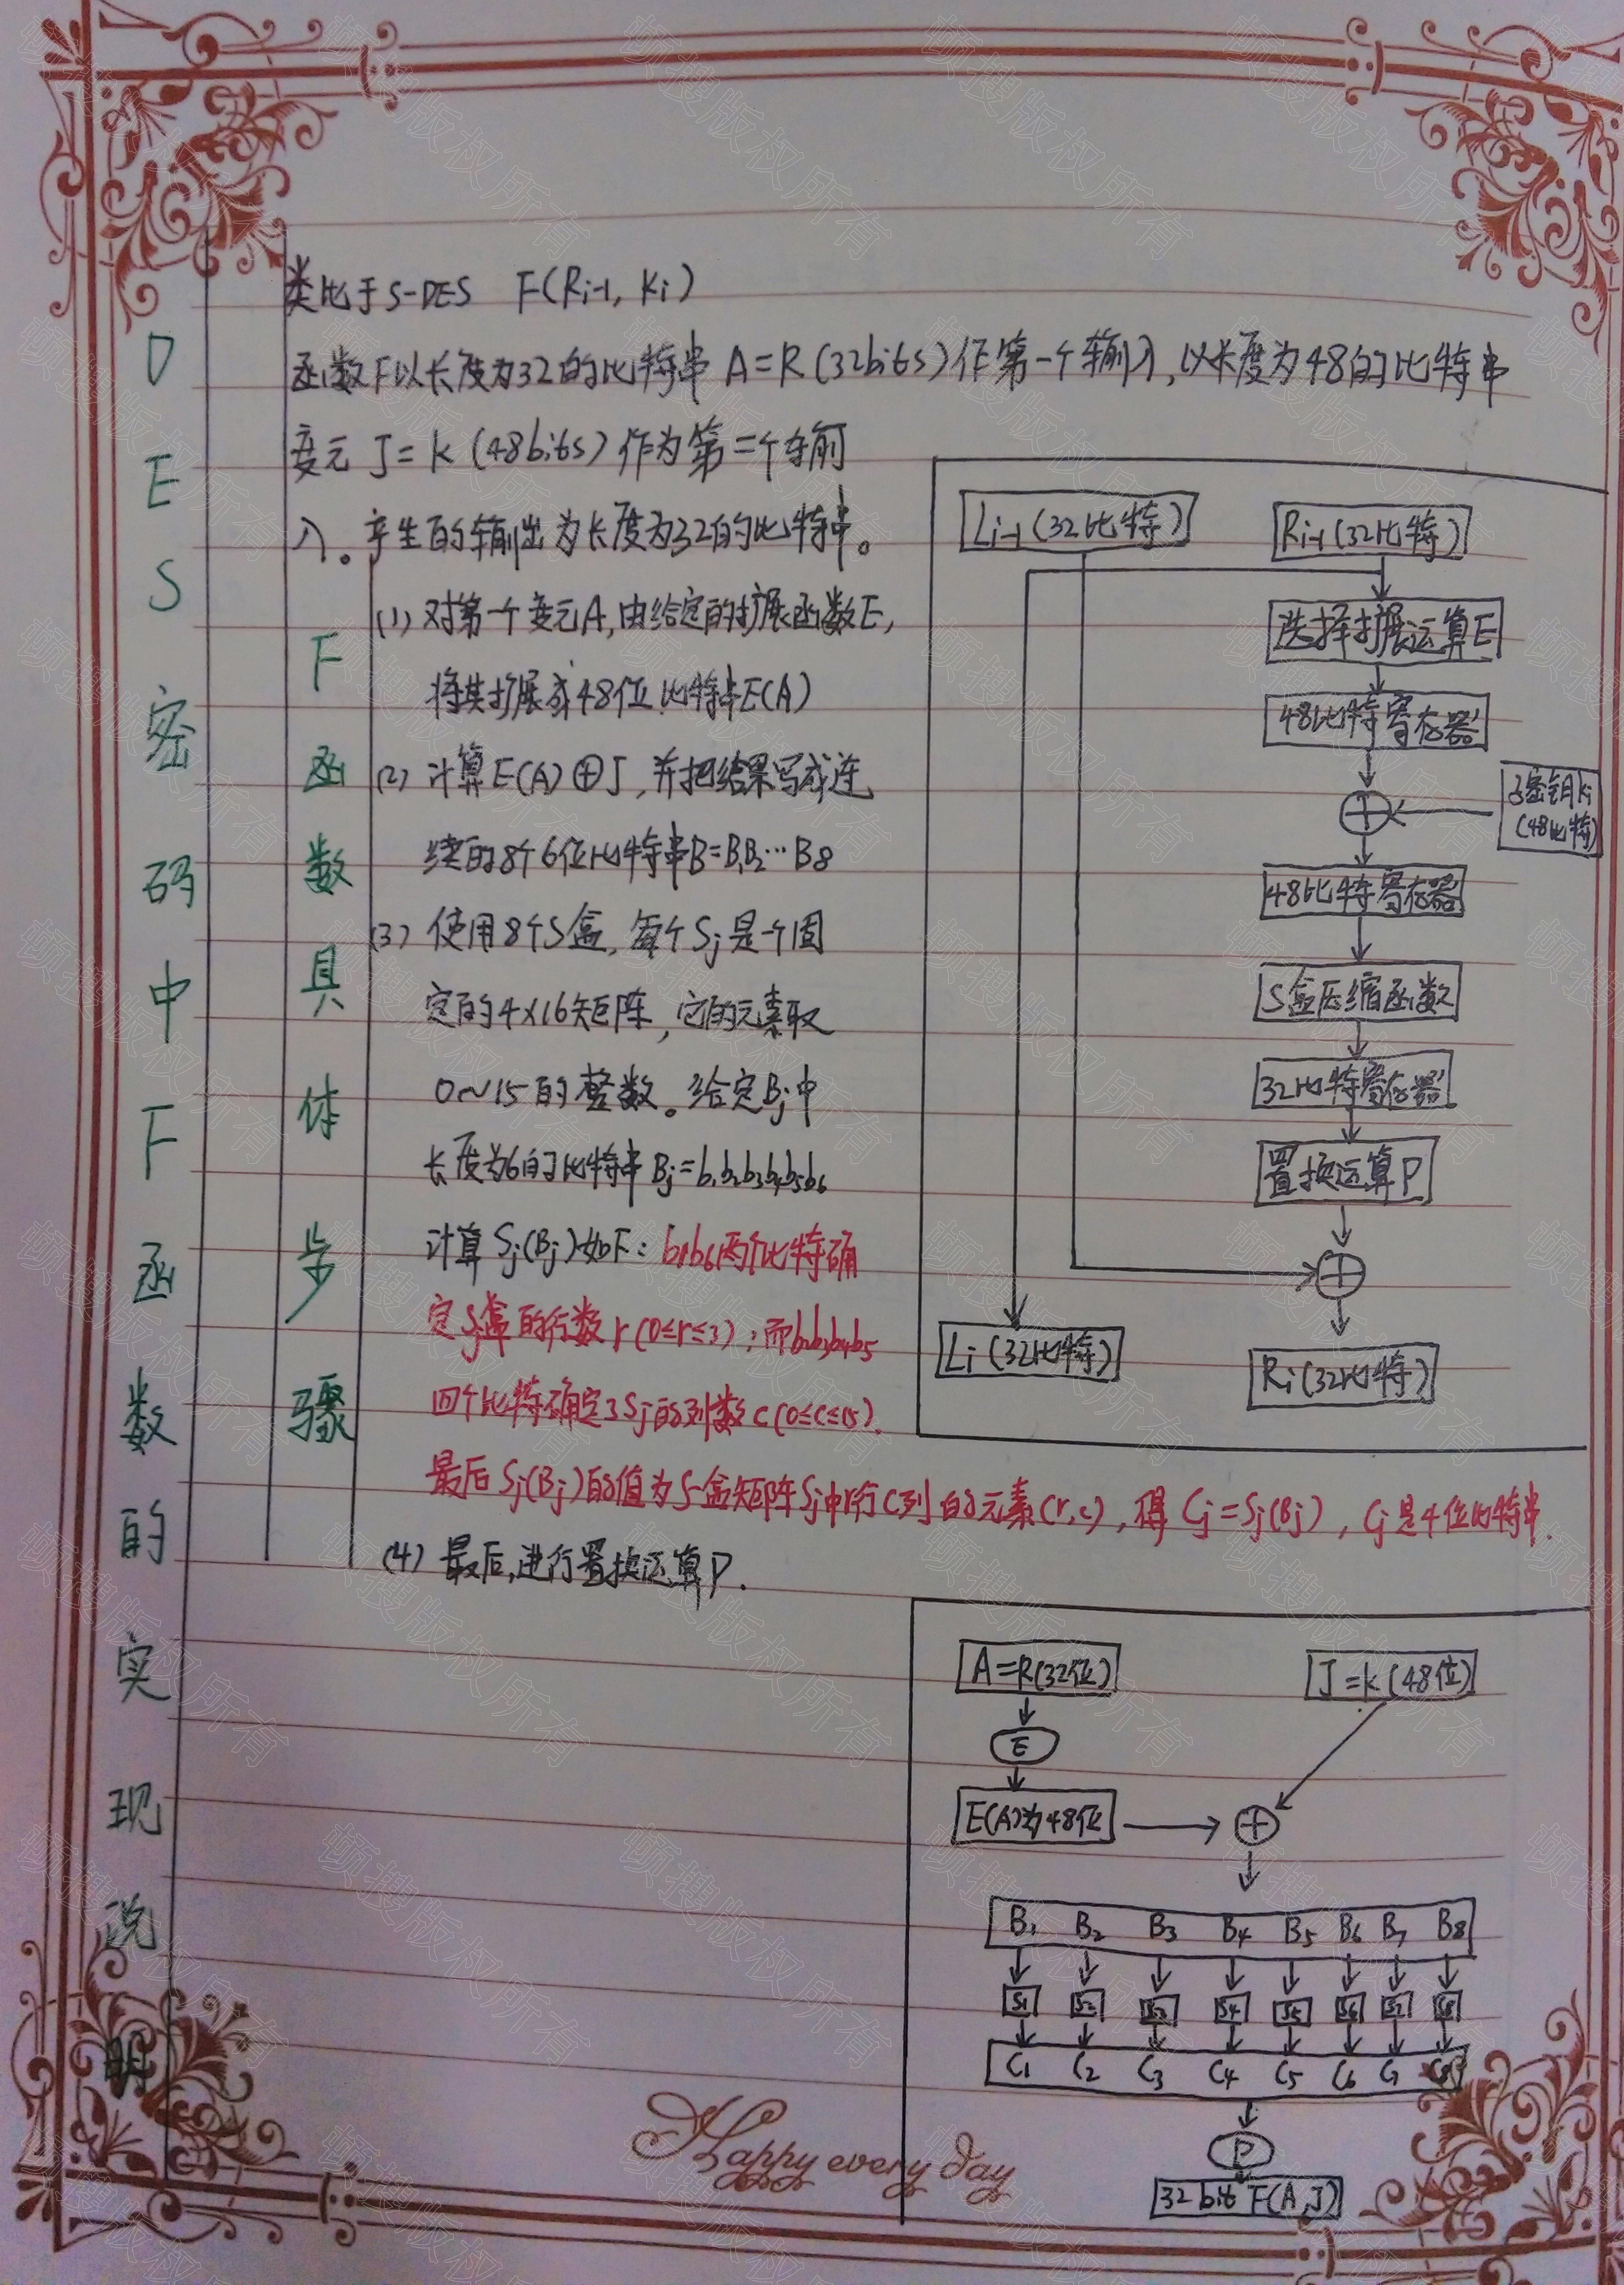 DES密码中F函数的实现说明
F函数具体步骤
类比于S-DES F(Ri-1, Ki)
函数F以长度为32的比特串 A=R(32bits)作第一个输入,以长度为48的比特串
变元 J=K(48bits)作为第二个输
入。产生的输出为长度为32的比特串。
(1) 对第一个变元A,由给定的扩展函数E,
将其扩展成48位比特串E(A)
(2) 计算E(A)⊕J,并把结果写成连
续的8个6位比特串B=B1B2…B8
(3) 使用8个S盒,每个Sj是一个固
定的4×16矩阵,它的元素取
0~15的整数。给定Bj中
长度为6的比特串Bj=b1b2b3b4b5b6
计算Sj(Bj)如下:b1b6两个比特确
定Sj盒的行数r(0≤r≤3);而b2b3b4b5
四个比特确定了Sj的列数c(0≤c≤15).
最后Sj(Bj)的值为S-盒矩阵Sj中r行c列的元素(r,c),得Cj=Sj(Bj),Cj是4位比特串.
(4) 最后,进行置换运算P.
Li-1(32比特) Ri-1(32比特)
选择扩展运算E
48比特寄存器
⊕
子密钥Ki
(48比特)
48比特寄存器
S盒压缩函数
32比特寄存器
置换运算P
⊕
Li(32比特) Ri(32比特)
A=R(32位) J=K(48位)
E
E(A)为48位 ⊕
B1 B2 B3 B4 B5 B6 B7 B8
S1 S2 S3 S4 S5 S6 S7 S8
C1 C2 C3 C4 C5 C6 C7 C8
P
32bit F(A,J)
Happy every day
硕搜版权所有